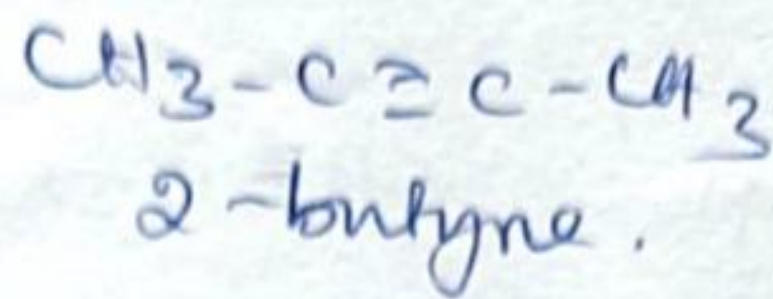 CH3-C≡C-CH3
2-butyne.